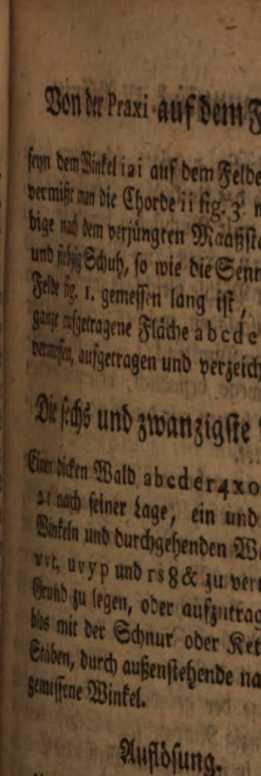 Von der Praxi auf dem F
seyn dem Winkel iai auf dem Felde
vermißt man die Chorde ii fig. 3.
bige nach dem verjüngten Maaßst
und siebzig Schuh, so wie die Senn
Felde fig. 1. gemessen lang ist,
ganze aufgetragene Fläche abcde
vermessen, aufgetragen und verzeich
Die sechs und zwanzigste
Einen dicken Wald abcder4xo
nach seiner Lage, ein und
Winkeln und durchgehenden We
vvt, uvyp und rs8& zu ver
Grund zu legen, oder aufzutrag
blos mit der Schnur oder Ket
Stäben, durch außenstehende na
gemessene Winkel.
Auflösung.